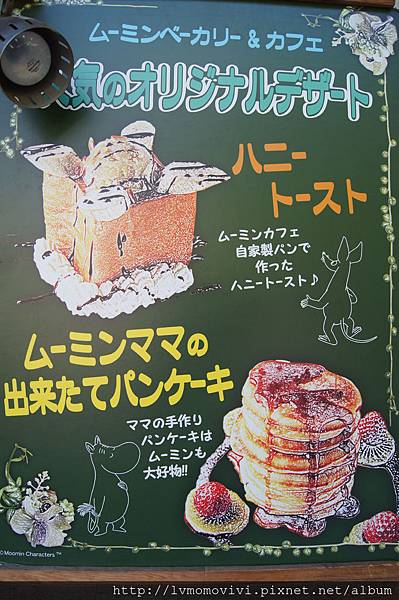 ムーミンベーカリー & カフェ
気のオリジナルデザート
ハニー
トースト
ムーミンカフェ
自家製パンで
作った
ハニートースト♪
ムーミンママの
出来たてパンケーキ
ママの手作り
パンケーキは
ムーミンも
大好物!!
©Moomin Characters™
http://lvmomovivi.pixnet.net/album